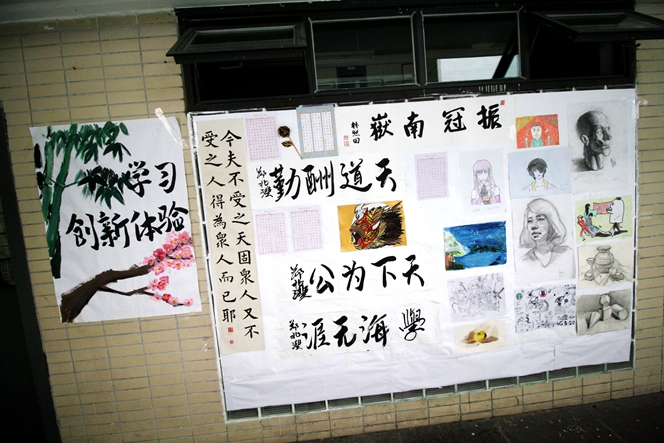 学习
创新体验
今夫不受之天固眾人又不
受之人得為眾人而已耶
振冠南嶽
天道酬勤
天下为公
學海无涯